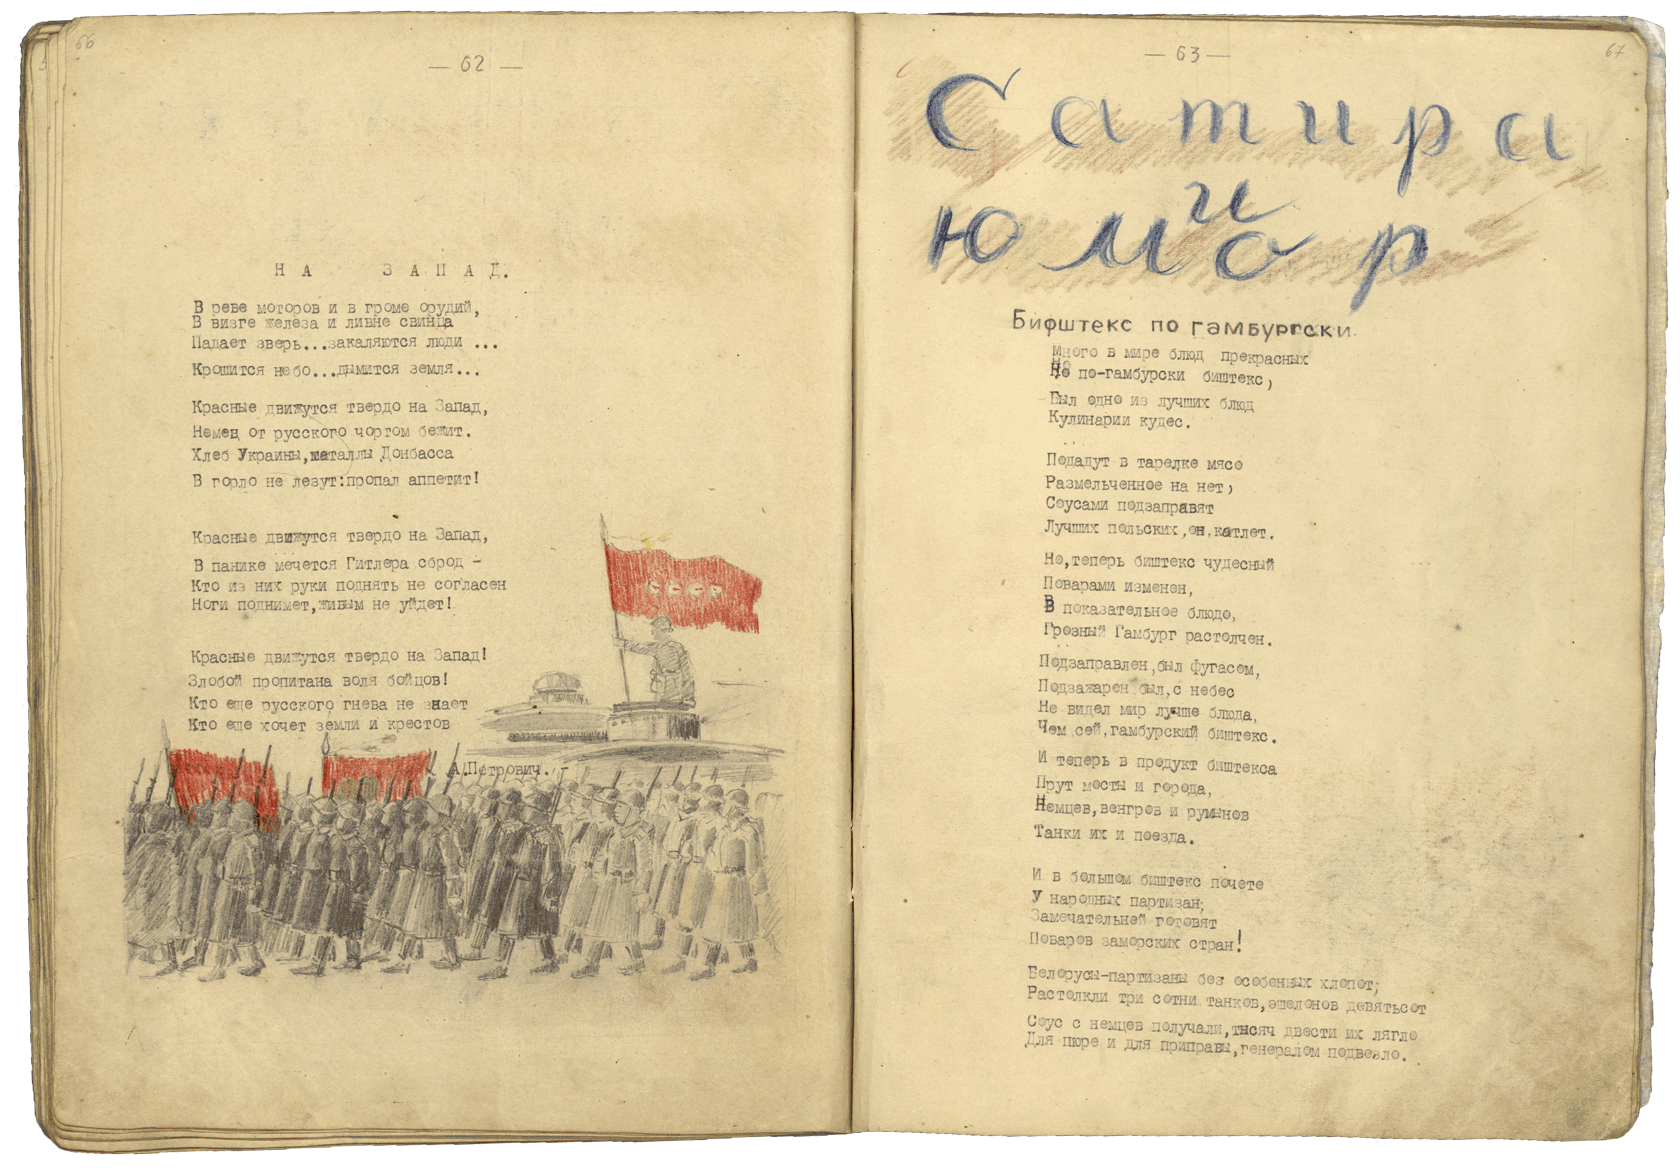 66
— 62 —
НА ЗАПАД.
В реве моторов и в громе орудий,
В визге железа и ливне свинца
Падает зверь...закаляются люди ...
Крошится небо...дымится земля...
Красные движутся твердо на Запад,
Немец от русского чортом бежит.
Хлеб Украины,металлы Донбасса
В горло не лезут:пропал аппетит!
Красные движутся твердо на Запад,
В панике мечется Гитлера сброд -
Кто из них руки поднять не согласен
Ноги поднимет,живым не уйдет!
Красные движутся твердо на Запад!
Злобой пропитана воля бойцов!
Кто еще русского гнева не знает
Кто еще хочет земли и крестов
А.Петрович.
СССР
— 63 —
67
Сатира
и
юмор
Бифштекс по гамбургски.
Много в мире блюд прекрасных
Но по-гамбурски биштекс,
Был одно из лучших блюд
Кулинарии кудес.
Подадут в тарелке мясо
Размельченное на нет,
Соусами подзаправят
Лучших польских,он,котлет.
Но,теперь биштекс чудесный
Поварами изменен,
В показательное блюдо,
Грозный Гамбург растолчен.
Подзаправлен,был фугасом,
Подзажарен был,с небес
Не видел мир лучше блюда,
Чем сей,гамбурский биштекс.
И теперь в продукт биштекса
Прут мосты и города,
Немцев,венгров и румынов
Танки их и поезда.
И в большом биштекс почете
У народных партизан;
Замечательней готовят
Поваров заморских стран!
Белорусы-партизаны без особенных хлопот;
Растолкли три сотни танков,эшелонов девятьсот
Соус с немцев получали,тысяч двести их лягло
Для пюре и для приправы,генералом подвезло.